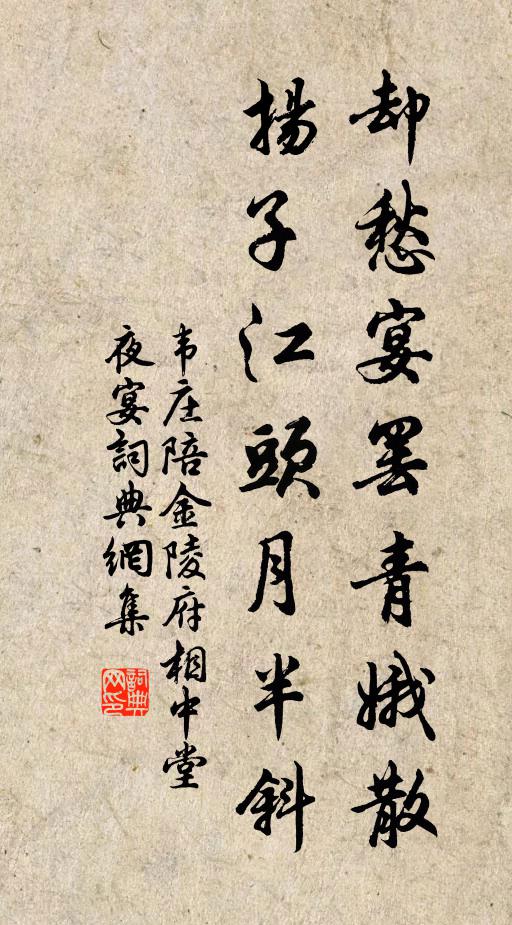 却愁宴罷青娥散
揚子江頭月半斜
韦庄陪金陵府相中堂
夜宴詞典網集
詞典网印